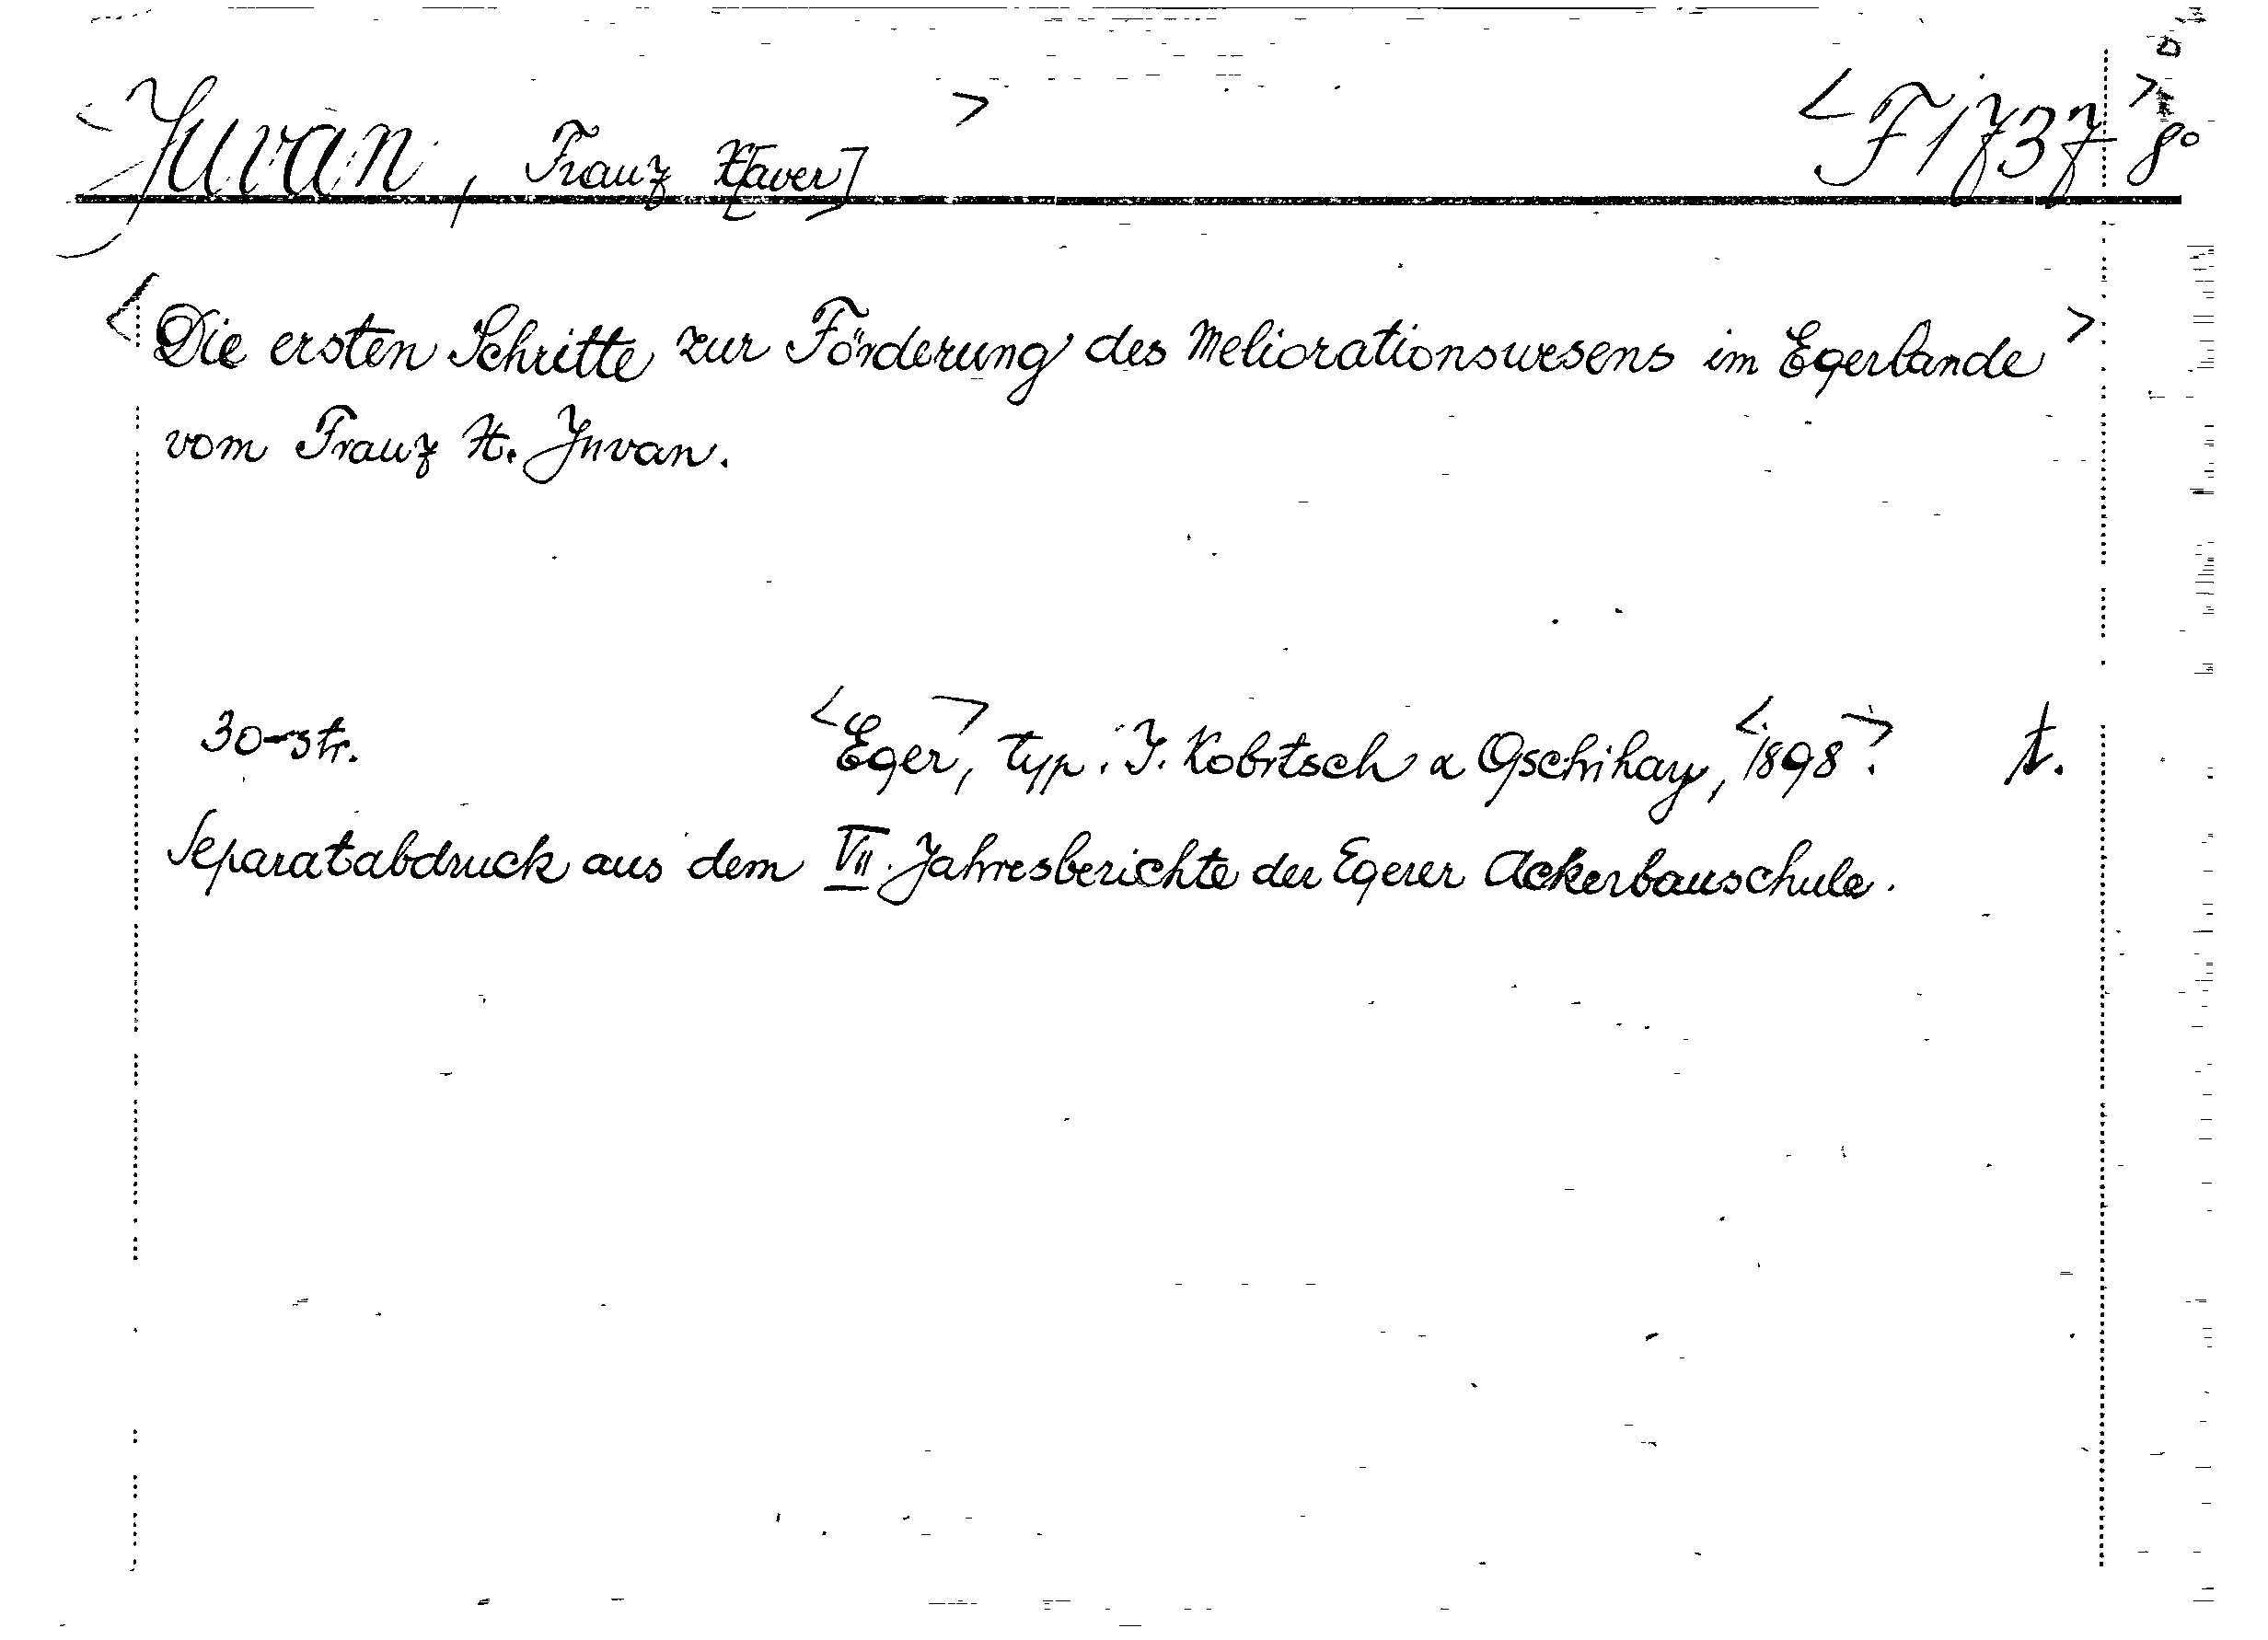 <Juvan, Franz X[aver]> <F 1737> 8°
<Die ersten Schritte zur Förderung des Meliorationswesens im Egerlande>
vom Franz X. Juvan.
30 str. <Eger>, typ. J. Kobrtsch & Gschihay, <1898>. t.
Separatabdruck aus dem VII. Jahresberichte der Egerer Ackerbauschule.